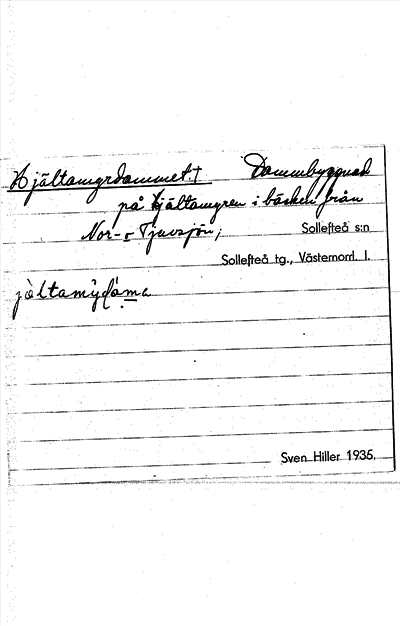 Hjältamyrdammet.† Dammbyggnad
på Hjältamyren i bäcken från
Nor- o Tjuvsjön; Sollefteå s:n
Sollefteå tg., Västernorrl. l.
Sven Hiller 1935.